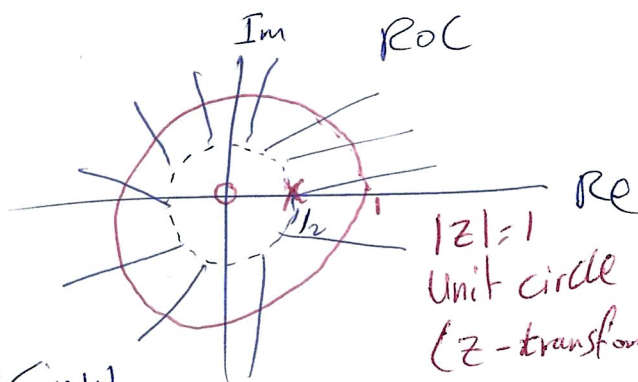 Im
RoC
Re
1/2
1
|z|=1
Unit circle
(z-transfor